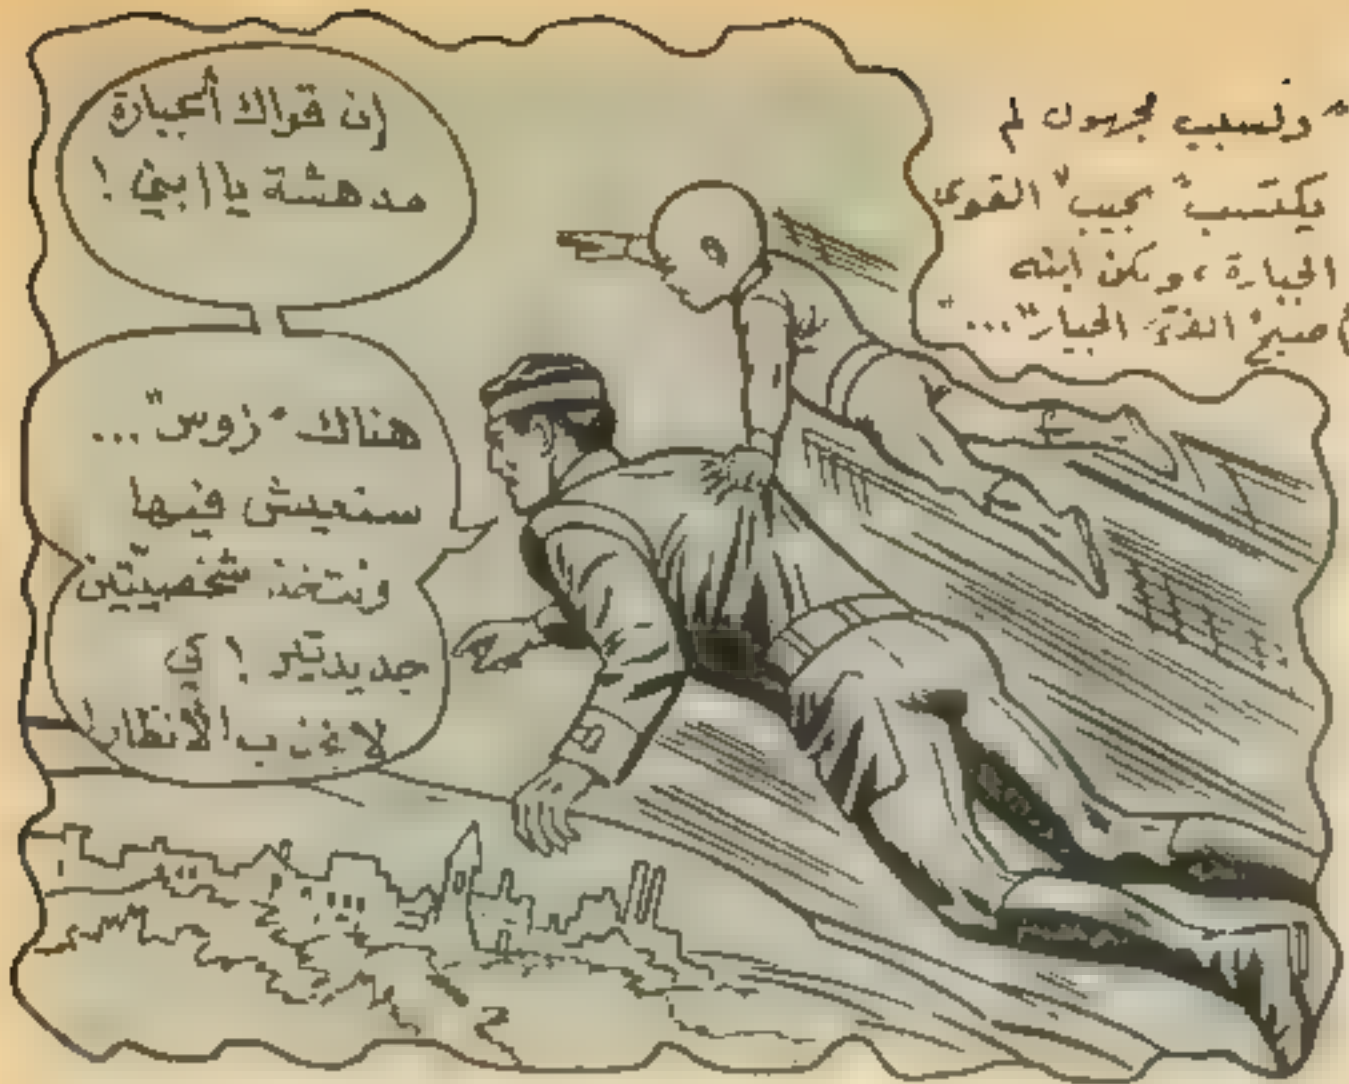 "ولسبب مجهول لم
يكتسب "مجيب" القوى
الجبارة ، ولكن ابنه
أصبح "الفتى الجبار"..."
إن قواك الجبارة
مدهشة يا ابني !
هناك "زوس"...
سنعيش فيها
ونتخذ شخصيتين
جديدتين ! كي
لا نجذب الأنظار !